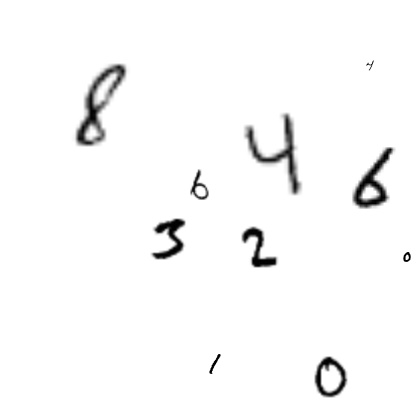 4
8
4
6 6
3 2
0
1 0